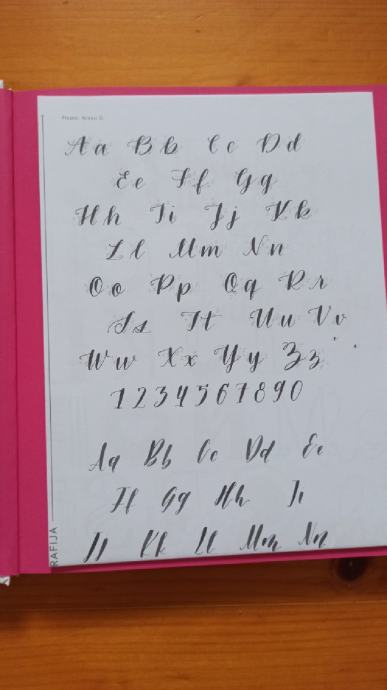 Aa Bb Cc Dd
Ee Ff Gg
Hh Ii Jj Kk
Ll Mm Nn
Oo Pp Qq Rr
Ss Tt Uu Vv
Ww Xx Yy Zz
1234567890
Aa Bb Cc Dd Ee
Ff Gg Hh Ii
Jj Kk Ll Mm Nn
RAFIJA